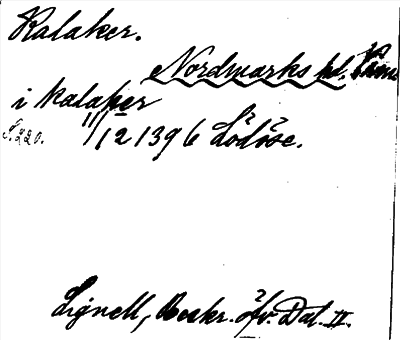 Kalaker.
Nordmarks hd. Värml
i kalaker
S. 220. 11/12 1396 Lödöse.
Lignell, Beskr. öfv. Dal. II.